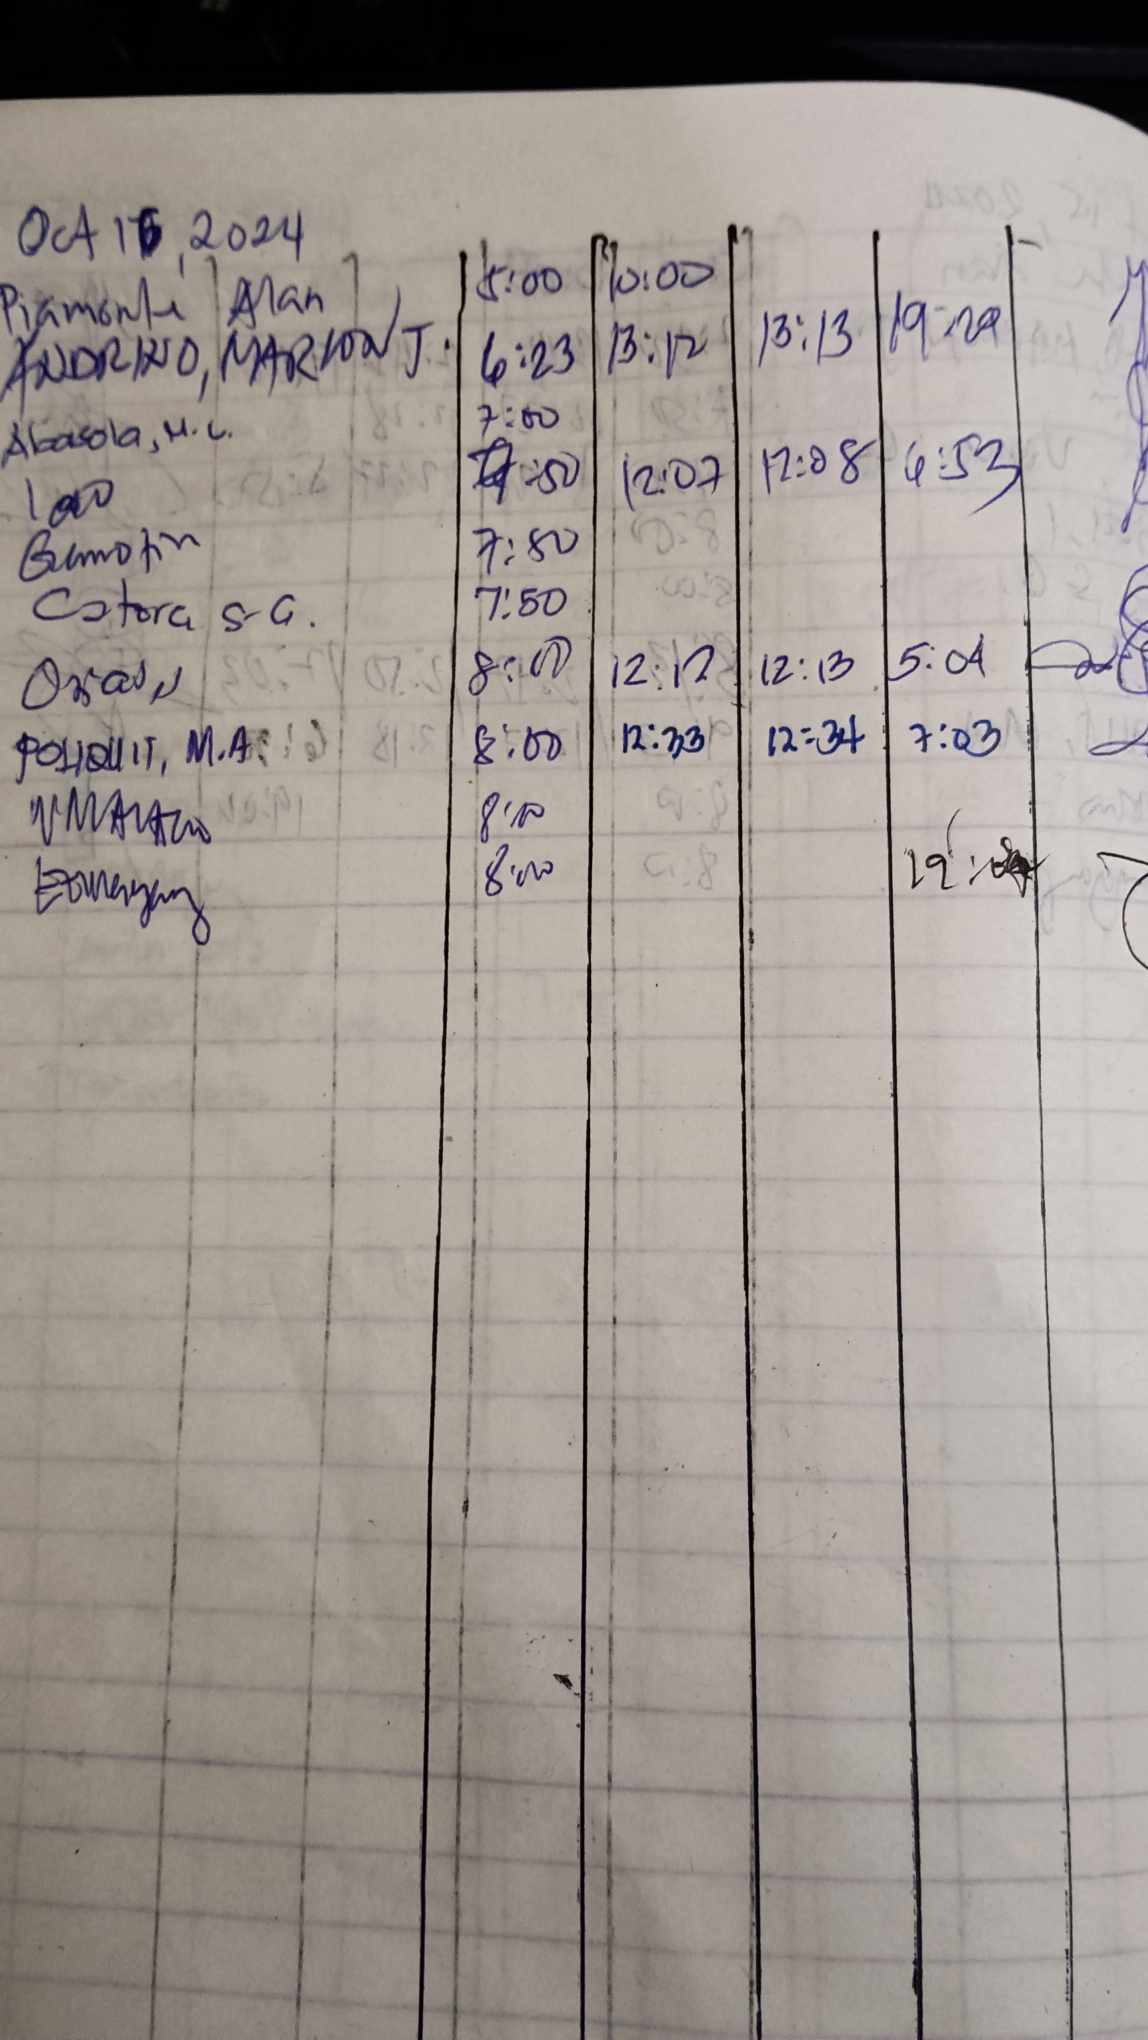 Oct 16, 2024
Piamonte Alan 5:00 10:00
ANDRINO, MARION J. 6:23 13:12 13:13 19:29
Abasola, M.C. 7:00
:50 12:07 12:08 6:53
7:50
Cstora S G. 7:50
8:00 12:12 12:13 5:04
POLIQUIT, M.A. 8:00 12:33 12:34 7:03
8:00
8:00 19: